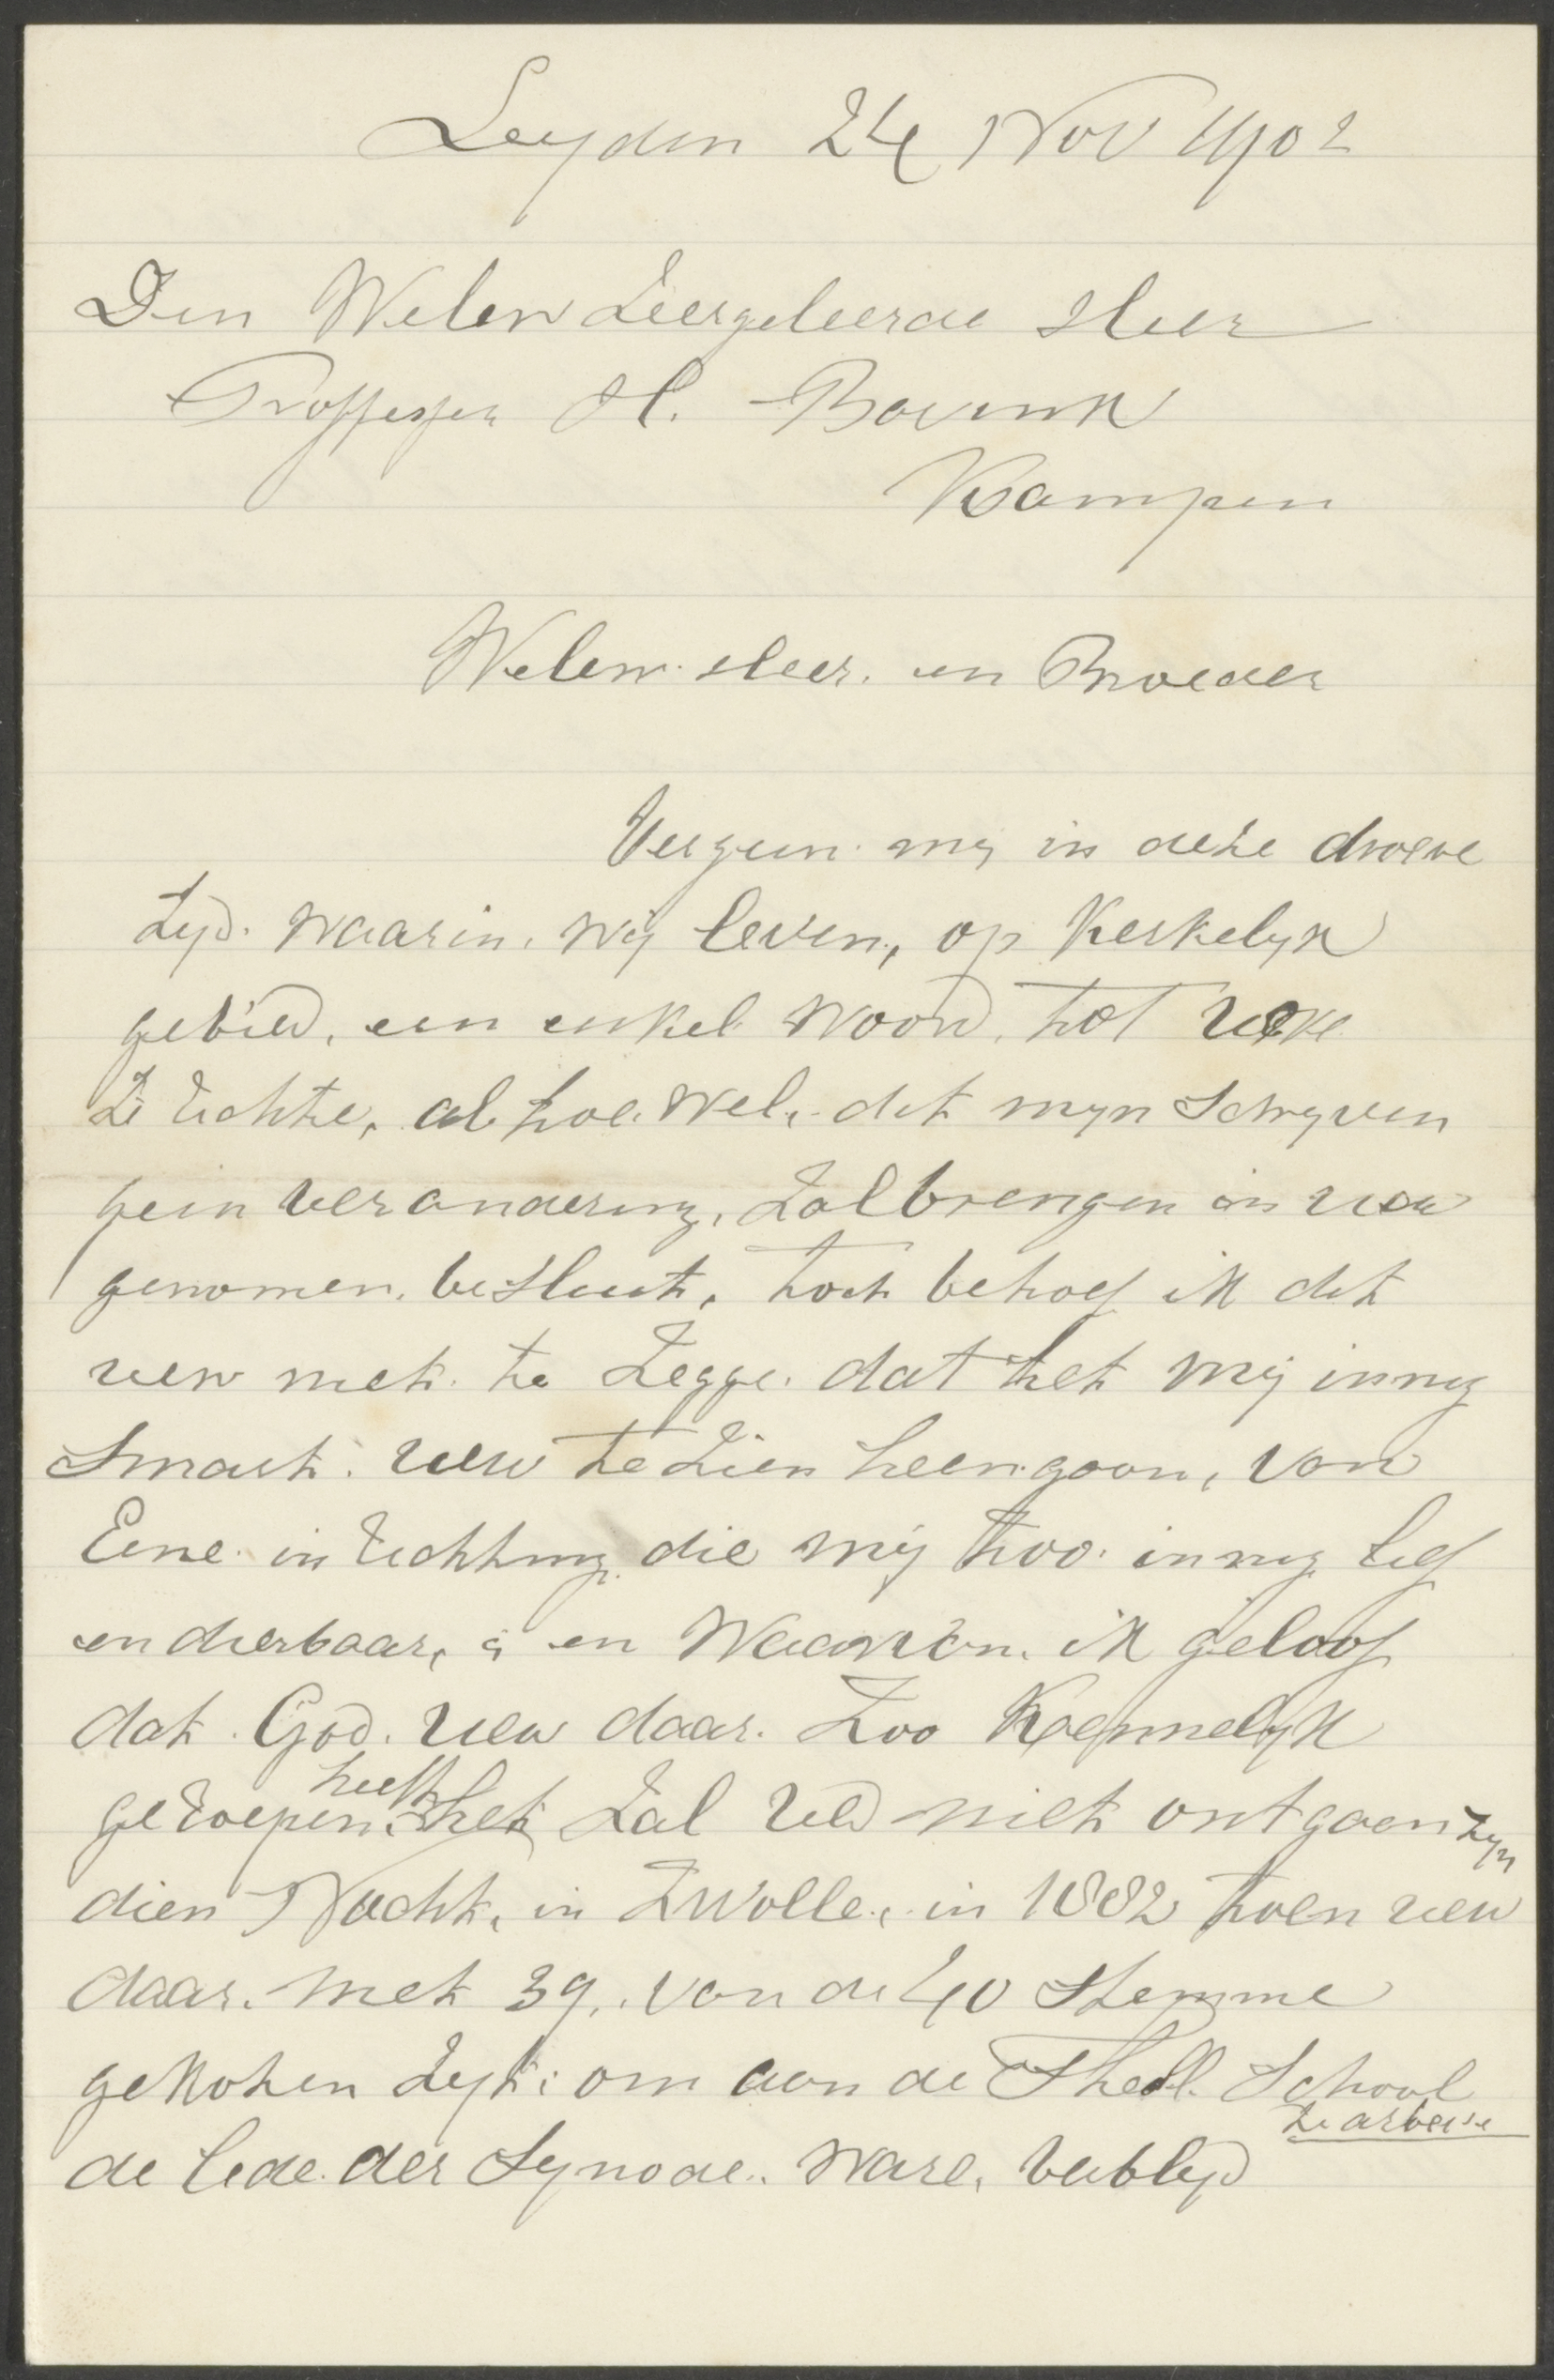 Leyden 24 Nov 1902
Den Welew Zeergeleerde Heer
Proffessor H. Bavink
Kampen
Welew. Heer. en Broeder
Vergun. mij in deze droeve
tyd. waarin. wij leven, op Kerkelyk
gebied, een enkel woord, tot uwe
te richte, al hoe. wel, dit myn schryven
gein verandering, zal brengen in uw
genomen. besluit, toch behoef ik dit
uew niet. te zegge. dat het mij innig
smart. uew te zien heengaan, van
Eene inrichting die mij zoo. innig lief
en dierbaar, is en waarvan. ik geloof
dat. God. uew daar. zoo Kaennelyk
geroepen heeft, het zal UEd niet ontgaen zyn
dien Nacht, in Zwolle, in 1882 toen uew
daar. met 39, van de 40 stemme
gekozen zyt. om aan de Theol. School
te arbeide
de lede. der Synode. ware, verblyd